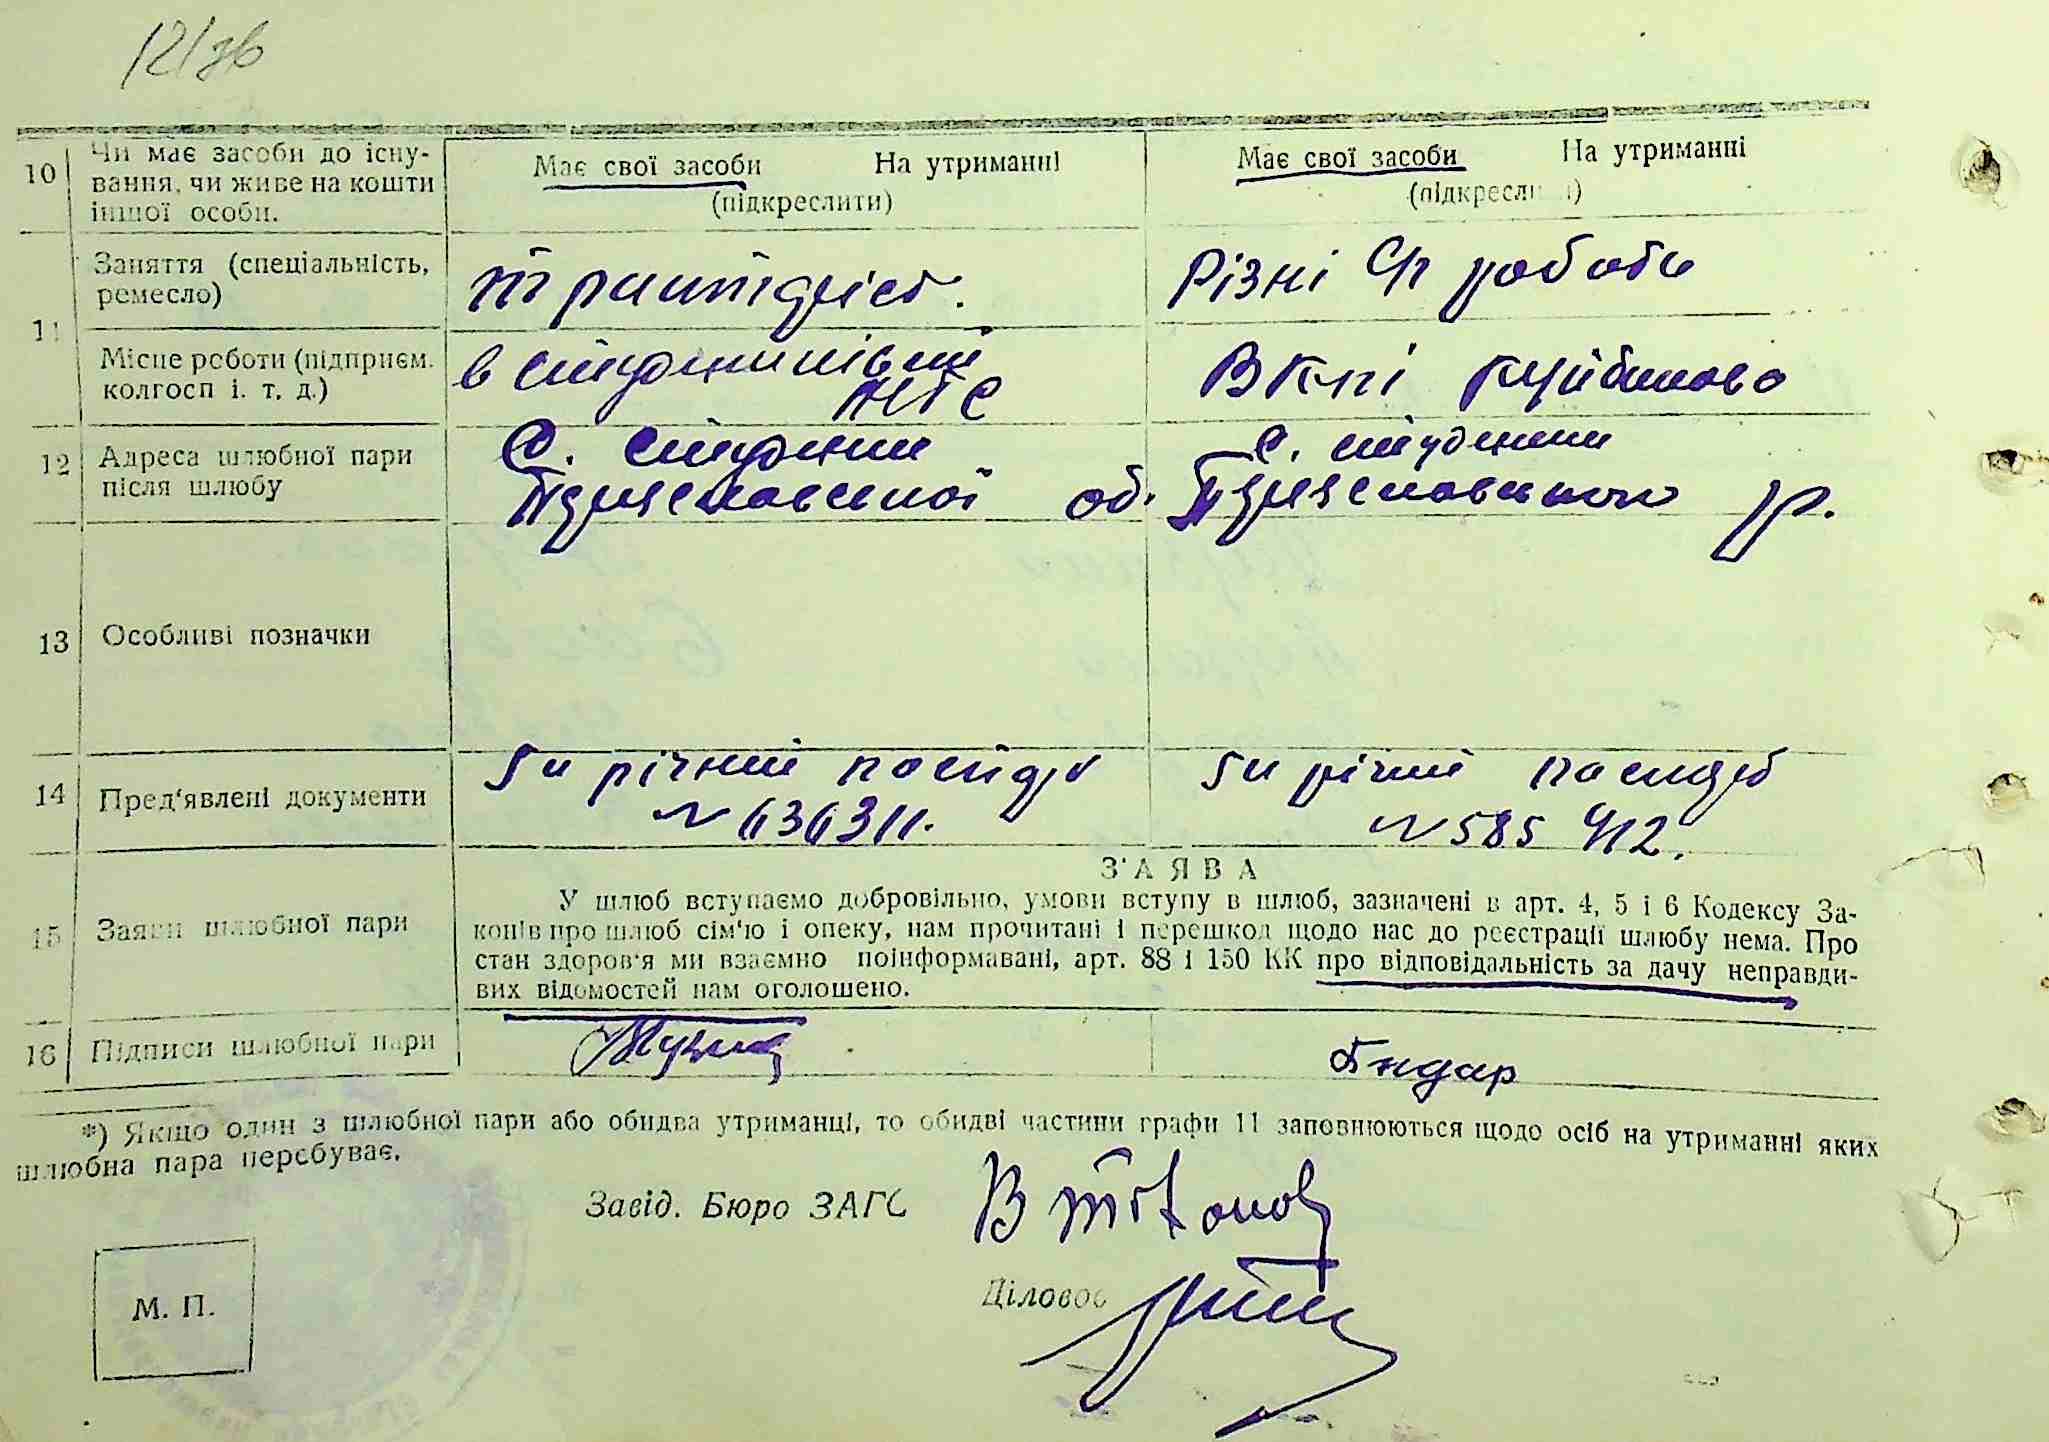 12/зв
10 Чи має засоби до існу-
вання, чи живе на кошти
іншої особи.
Має свої засоби На утриманні
(підкреслити)
Має свої засоби На утриманні
(підкреслити)
11 Заняття (спеціальність,
ремесло)
Різні с/г работи
Місце роботи (підприєм.
колгосп і. т. д.)
в студениківській
МТС
В к-пі Куйбишева
12 Адреса шлюбної пари
після шлюбу
с. студеники
об.
с. студеники
р.
13 Особливі позначки
14 Пред'явлені документи
5и річний паспорт
N 636311.
5и річний паспорт
N 585 412.
15 Заяви шлюбної пари
З'АЯВА
У шлюб вступаємо добровільно, умови вступу в шлюб, зазначені в арт. 4, 5 і 6 Кодексу За-
конів про шлюб сім'ю і опеку, нам прочитані і перешкод щодо нас до реєстрації шлюбу нема. Про
стан здоров'я ми взаємно поінформавані, арт. 88 і 150 КК про відповідальність за дачу неправди-
вих відомостей нам оголошено.
16 Підписи шлюбної пари
*) Якщо один з шлюбної пари або обидва утриманці, то обидві частини графи 11 заповнюються щодо осіб на утриманні яких
шлюбна пара перебуває.
Завід. Бюро ЗАГС
Діловод
М. П.